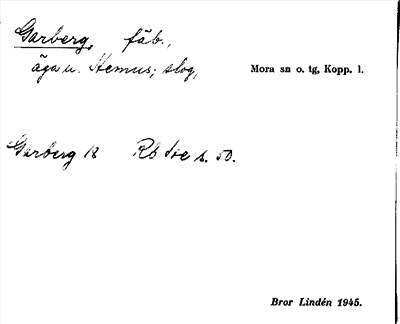 Garberg, fäb.,
äga u. Hemus; slog,
Mora sn o. tg, Kopp. l.
Garberg 18 Rb s. 50.
Bror Lindén 1945.